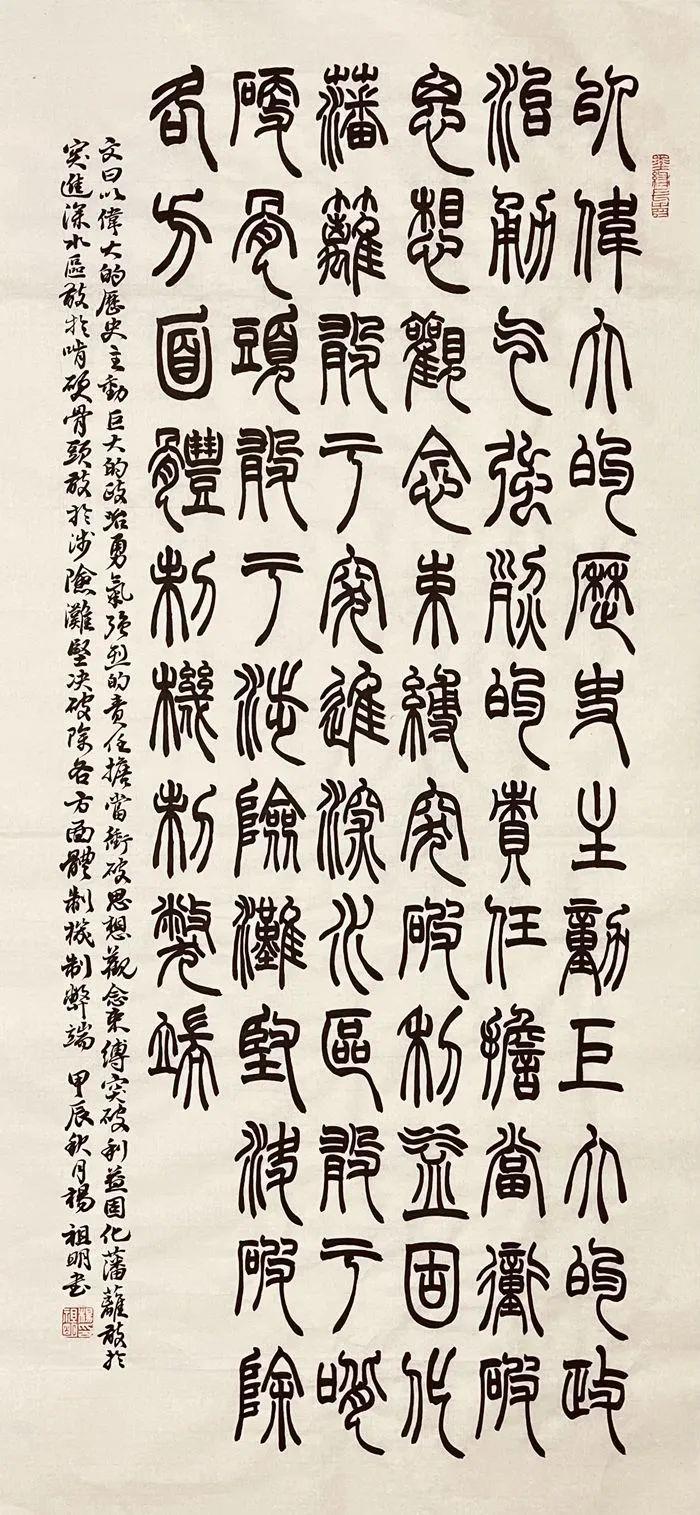 以偉大的歷史主動巨大的政
治勇气強烈的責任擔當衝破
思想觀念束縛突破利益固化
藩籬敢于突進深水區敢于啃
硬骨頭敢于涉險灘堅決破除
各方面體制機制弊端
文曰以偉大的歷史主動巨大的政治勇氣强烈的責任擔當衝破思想觀念束縛突破利益固化藩蘺敢於
突進深水區敢於啃硬骨頭敢於涉險灘堅决破除各方面體制機制弊端 甲辰秋月楊祖明書